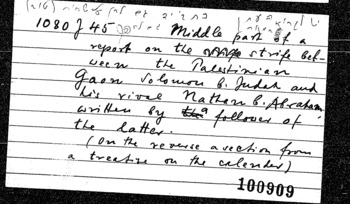 1080 J 45 Middle part of a
report on the strife bet-
ween the Palestinian
Gaon Solomon b. Judah and
his rival Nathan b. Abraham
written by a follower of
the latter.
(On the reverse a section from
a treatise on the calender)
100909